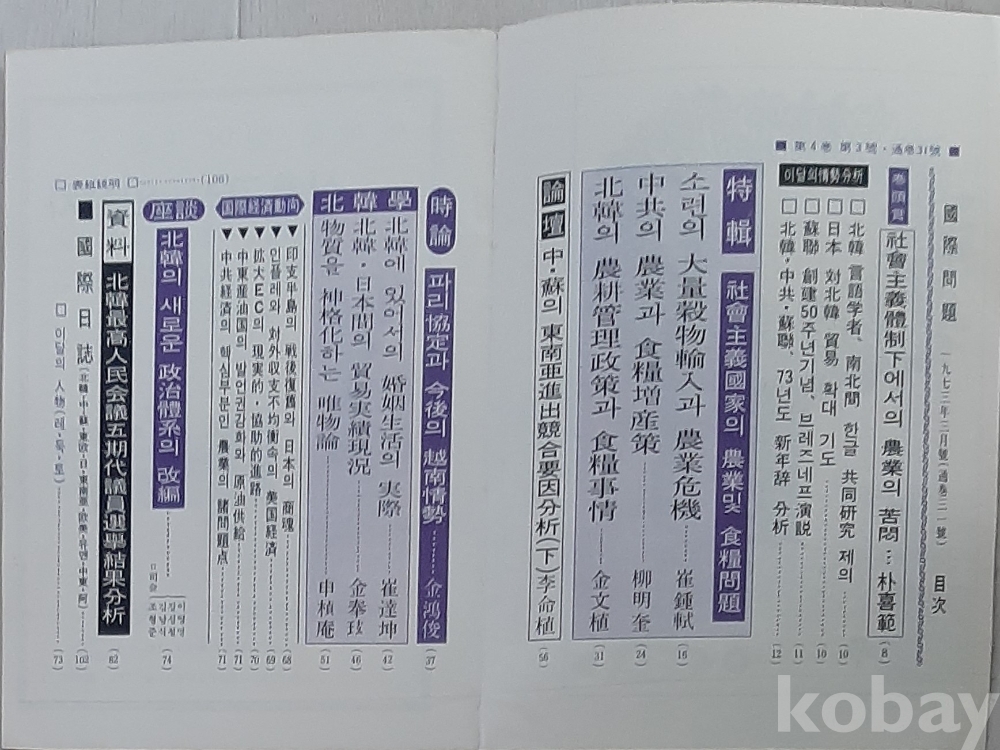 ■ 第4卷 第3號・通卷31號 ■
國際問題 一九七三年三月號(通卷三一號) 目次
卷頭言 社會主義體制下에서의 農業의 苦悶… 朴喜範 (8)
이달의 情勢分析
□ 北韓 言語学者、南北間 한글 共同研究 제의 (10)
□ 日本 対北韓 貿易 확대 기도 (10)
□ 蘇聯 創建50周年기념、브레즈네프演説 (11)
□ 北韓・中共・蘇聯、73년도 新年辞 分析 (12)
特輯 社會主義國家의 農業및 食糧問題
소련의 大量穀物輸入과 農業危機 崔鍾軾 (16)
中共의 農業과 食糧増産策 柳明奎 (24)
北韓의 農耕管理政策과 食糧事情 金文植 (31)
論壇 中・蘇의 東南亜進出競合要因分析(下) 李命植 (56)
時論 파리協定과 今後의 越南情勢 金鴻俊 (37)
北韓學
北韓에 있어서의 婚姻生活의 実際 崔達坤 (42)
北韓・日本間의 貿易実績現況 金奉玹 (46)
物質을 神格化하는 唯物論 申植庵 (51)
国際経済動向
▼ 印支半島의 戦後復舊와 日本의 商魂 (68)
▼ 인플레와 対外収支不均衡속의 美国経済 (69)
▼ 拡大EC의 現実的・協助的進路 (70)
▼ 中東産油国의 발언권강화와 原油供給 (71)
▼ 中共経済의 핵심부분인 農業의 諸問題点 (71)
座談 北韓의 새로운 政治體系의 改編 (74)
資料 北韓最高人民会議五期代議員選擧結果分析 (82)
□ 表紙説明 □ (106)
■ 國際日誌 (北韓・中・蘇・東欧・日・東南亜・欧美・유엔・中東・阿) (102)
□ 이달의 人物(레・둑・토) (73)
kobay